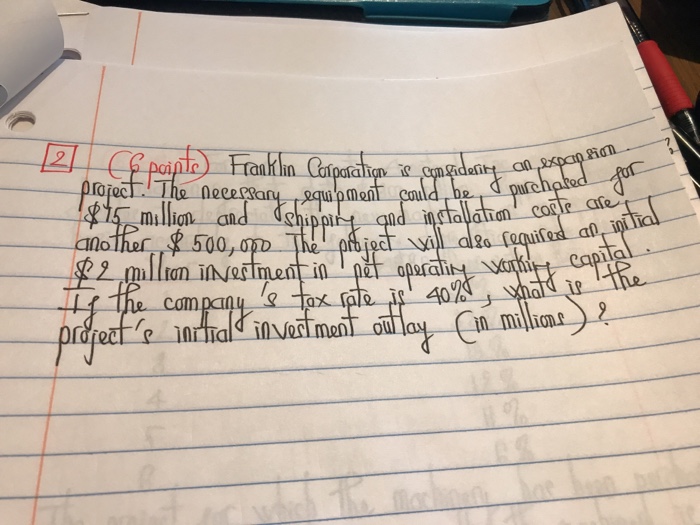 2 (6 points) Franklin Corporation is considering an expansion
project. The necessary equipment could be purchased for
$15 million and shipping and installation costs are
another $500,000 The project will also required an initial
$2 million investment in net operating working capital.
If the company's tax rate is 40%, what is the
project's initial investment outlay (in millions)?